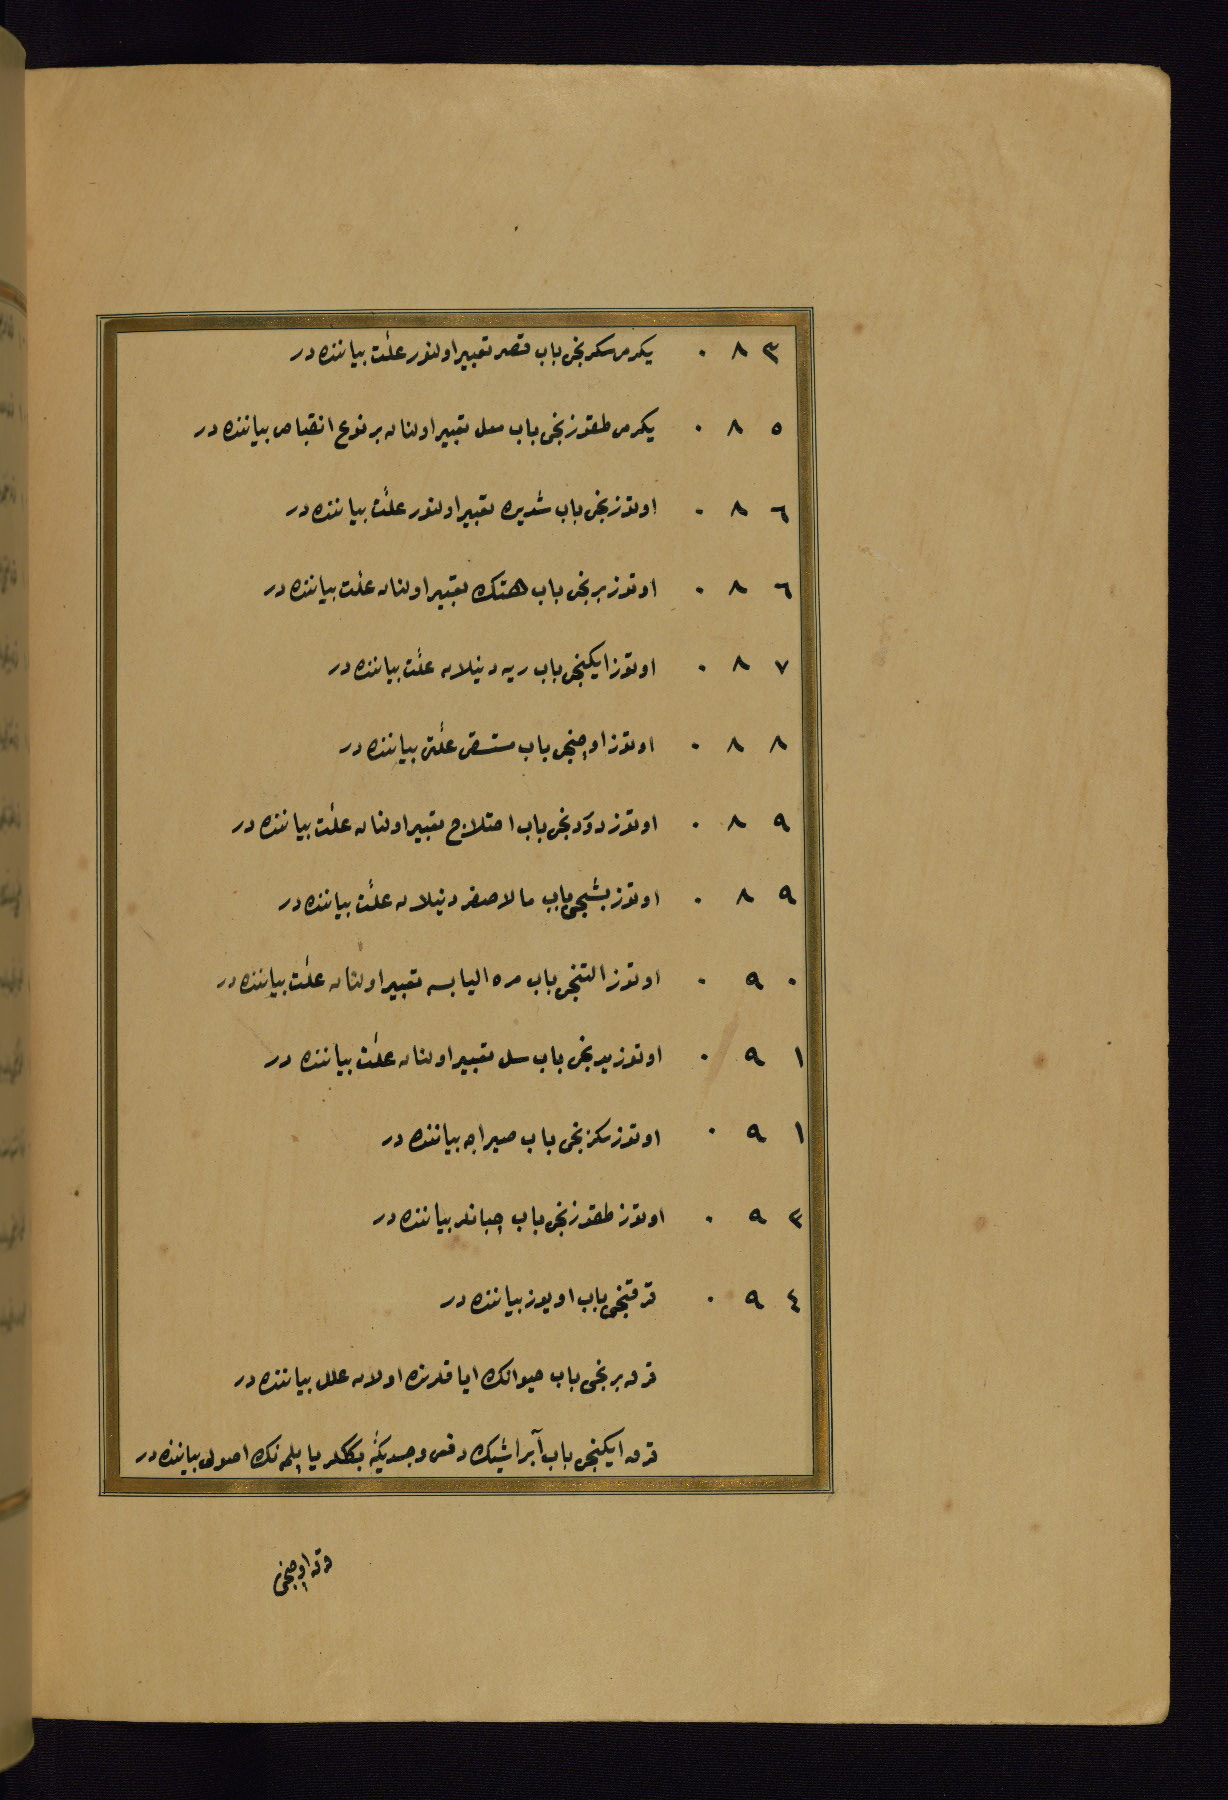 ٠٨٣ یكرمی سكزنجی باب قصر تعبیر اولنور علت بیاننده در
٠٨٥ یكرمی طقوزنجی باب معل تعبیر اولنان بر نوع انقباض بیاننده در
٠٨٦ اوتوزنجی باب شدیره تعبیر اولنور علت بیاننده در
٠٨٦ اوتوز برنجی باب هتك تعبیر اولنان علت بیاننده در
٠٨٧ اوتوز ایكنجی باب ریه دینلان علت بیاننده در
٠٨٨ اوتوز اوچنجی باب مستسقی علتی بیاننده در
٠٨٩ اوتوز دوردنجی باب اختلاج تعبیر اولنان علت بیاننده در
٠٨٩ اوتوز بشنجی باب مالاصفر دینلان علت بیاننده در
٠٩٠ اوتوز التنجی باب مره الیابسه تعبیر اولنان علت بیاننده در
٠٩١ اوتوز یدنجی باب سل تعبیر اولنان علت بیاننده در
٠٩١ اوتوز سكزنجی باب صیراجه بیاننده در
٠٩٣ اوتوز طقوزنجی باب چبانلر بیاننده در
٠٩٤ قرقنجی باب اویوز بیاننده در
قرق برنجی باب حیوانك ایاقلرنده اولان علل بیاننده در
قرق ایكنجی باب آبراشینك دفعی و جسدیكنه بكلر یاپلمه نك اصولی بیاننده در
قرق اوچنجی